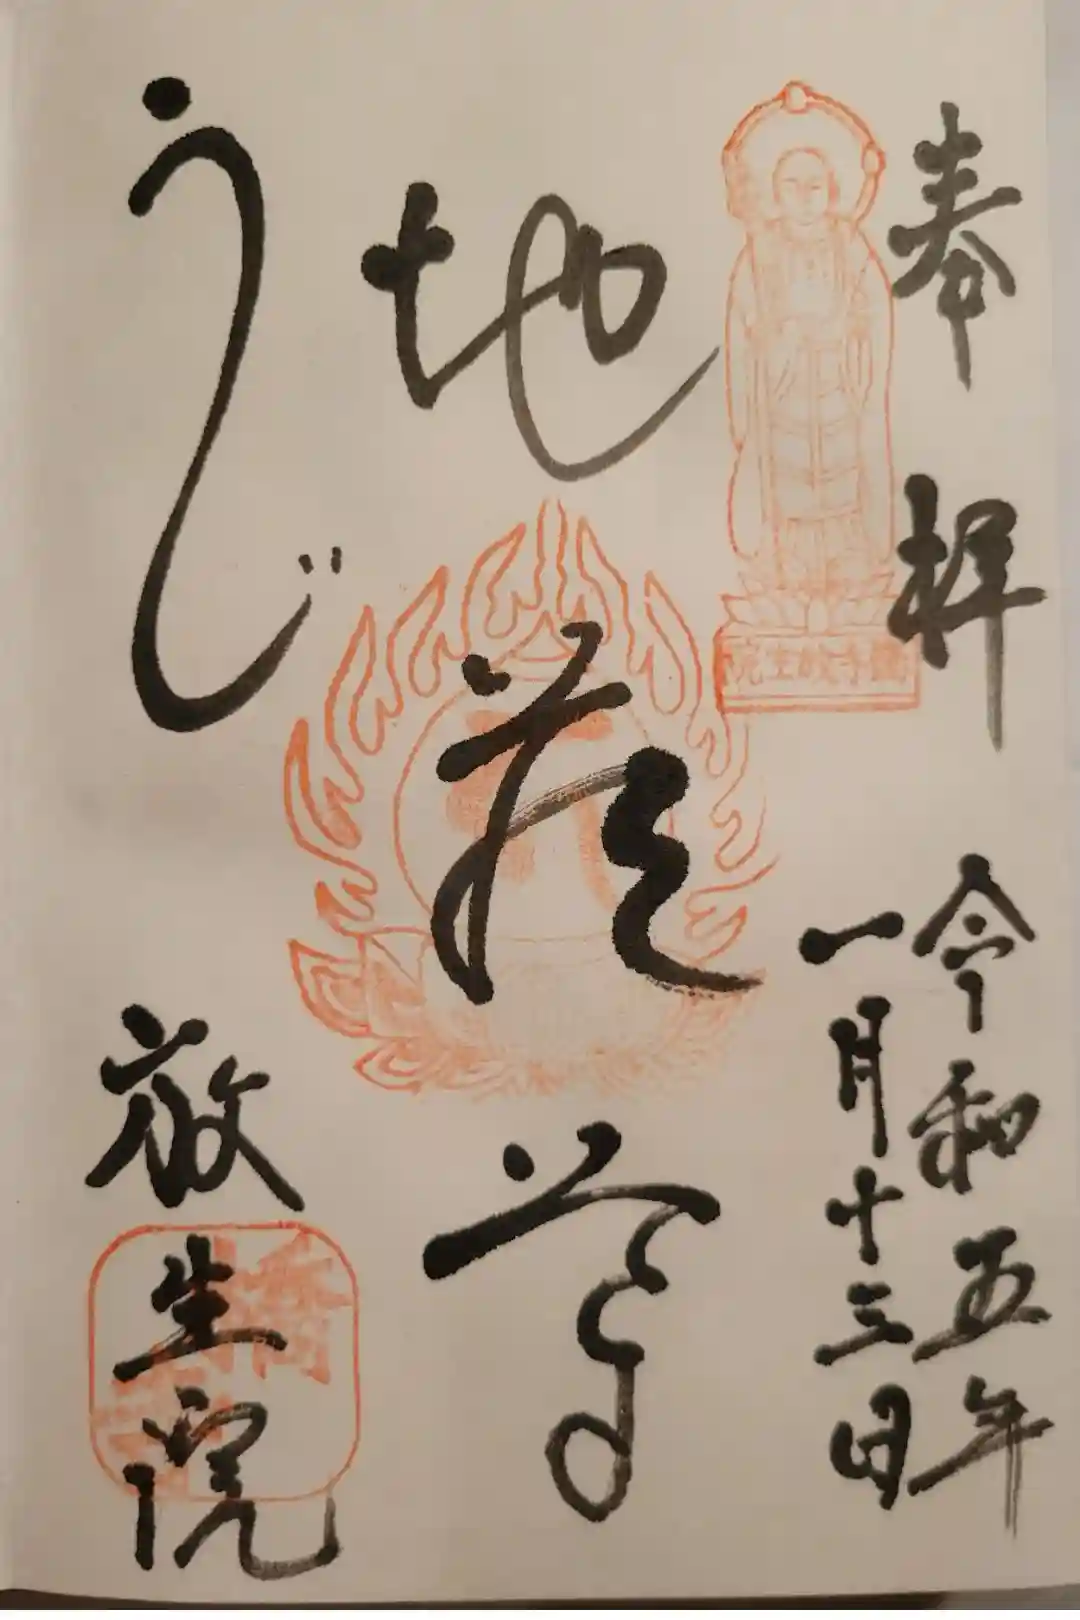 奉拝
令和五年
一月十三日
地蔵尊
うじ
放生院